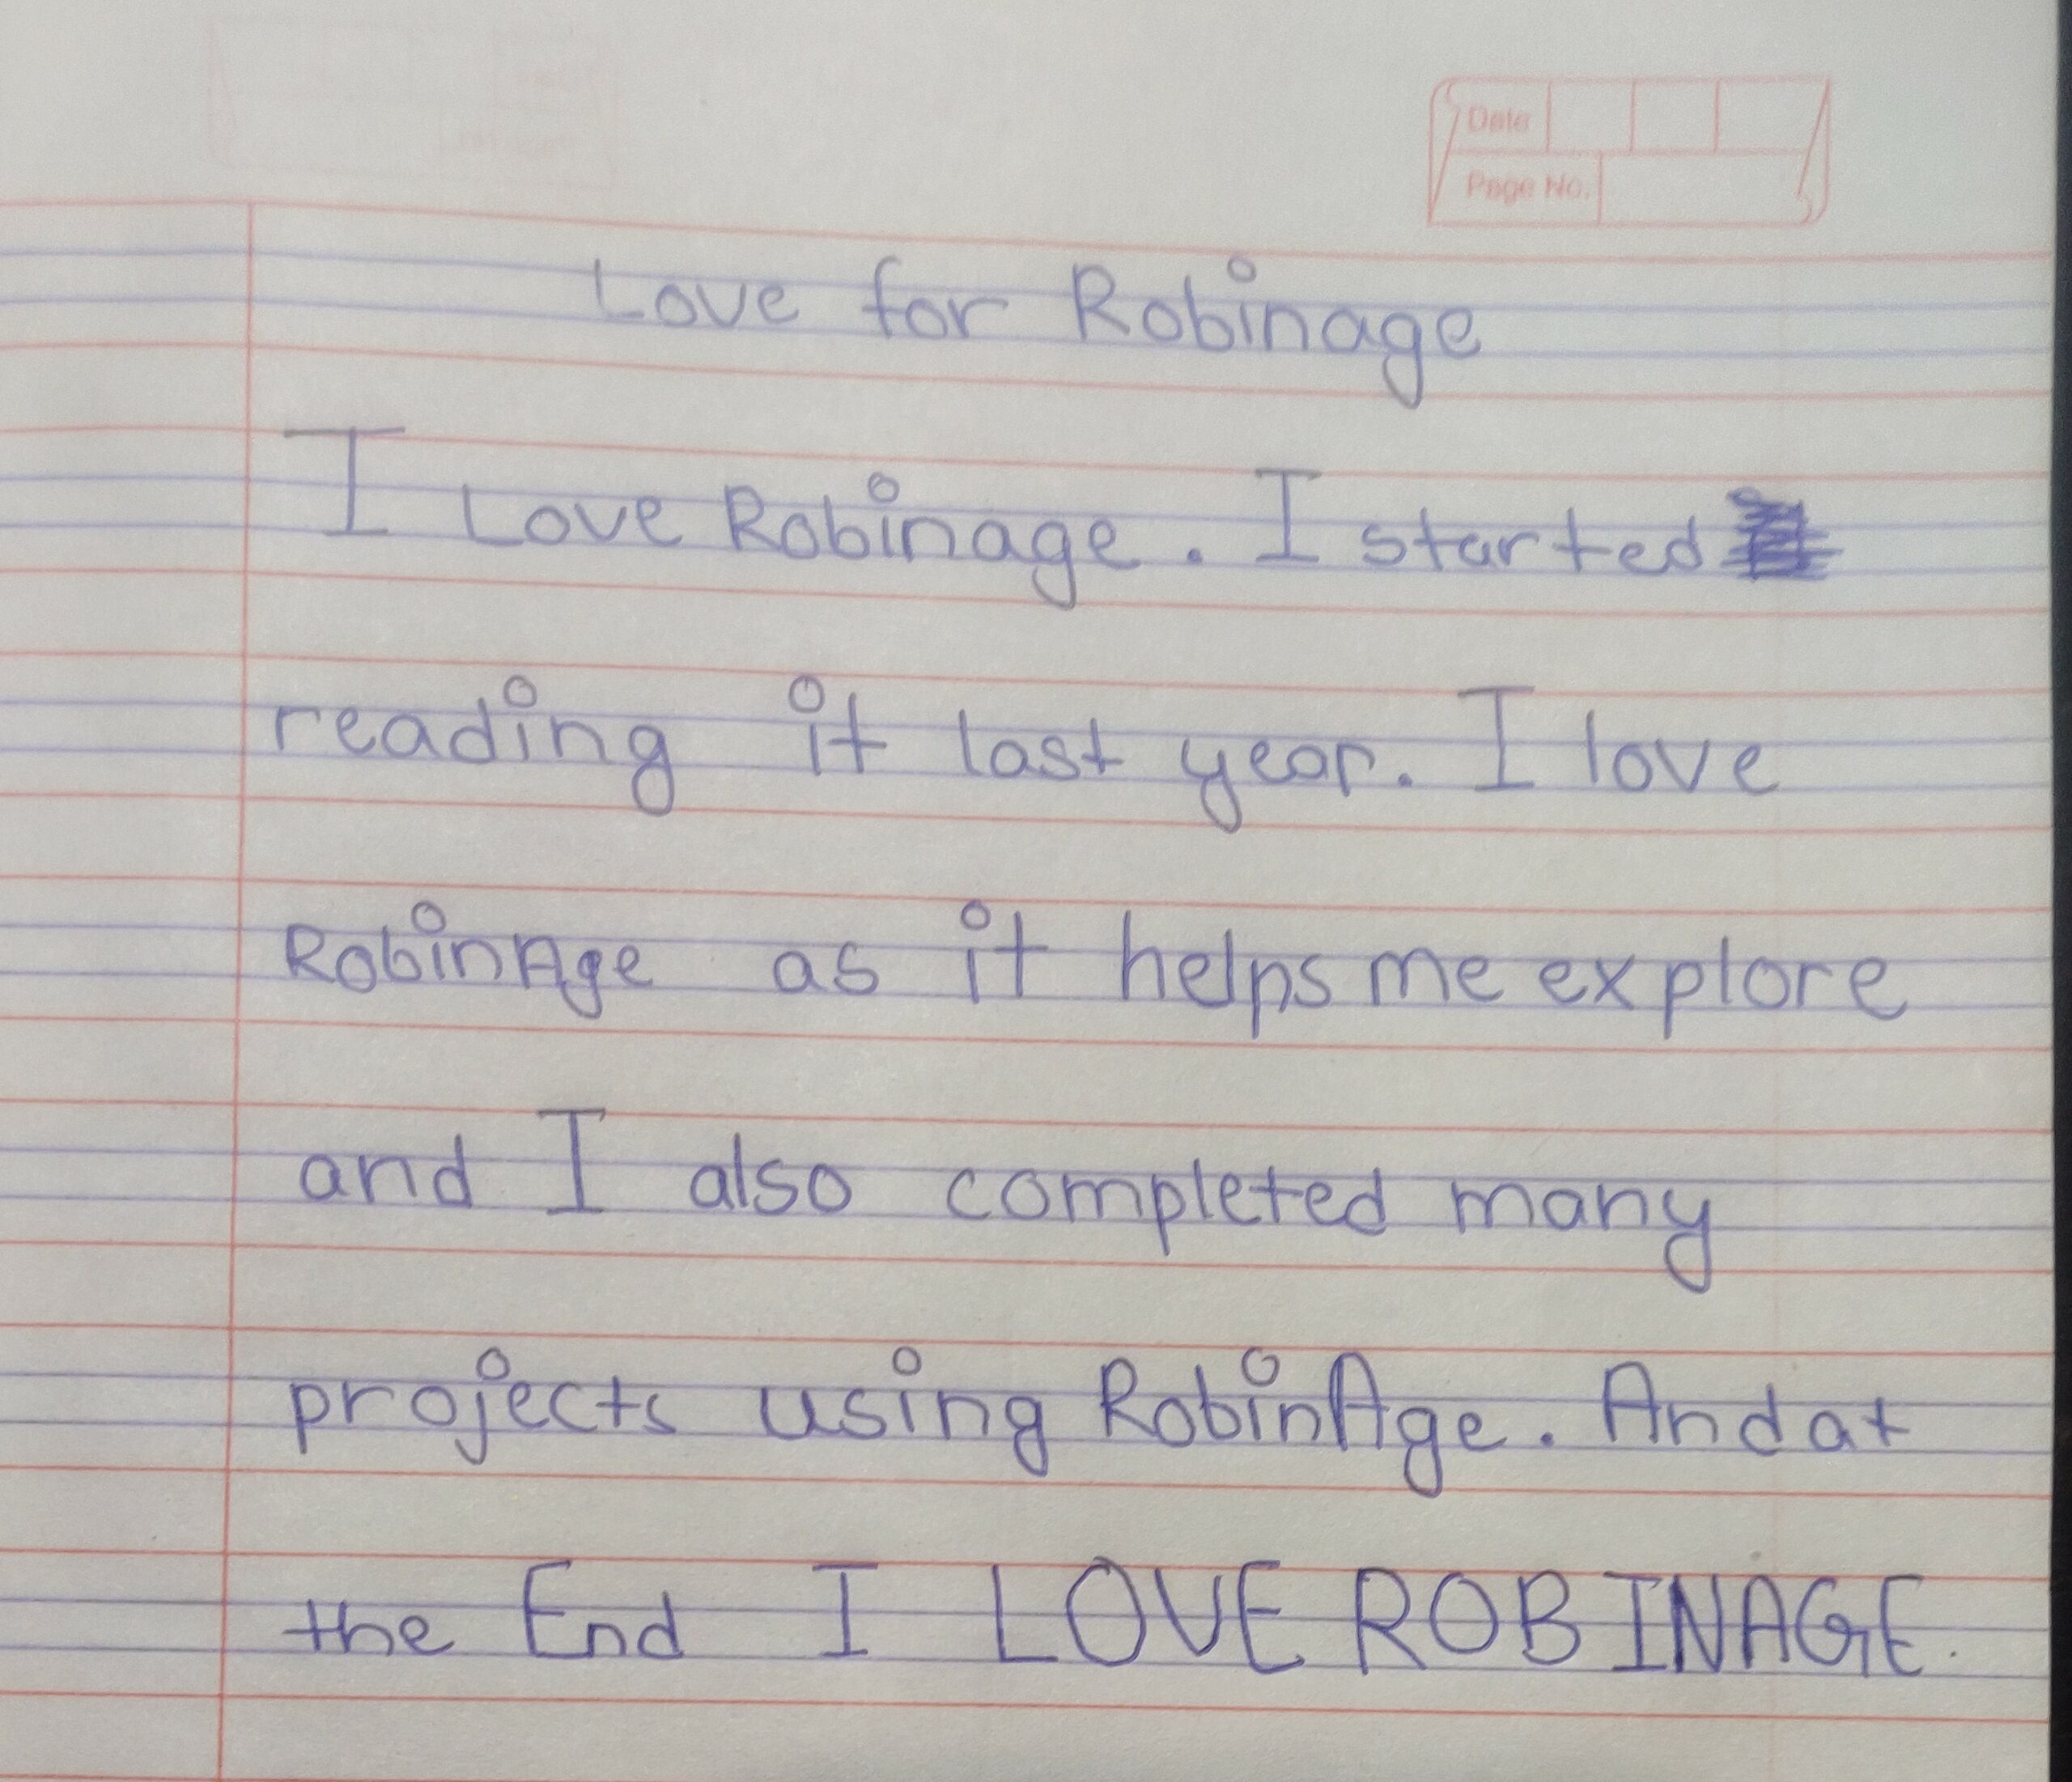 Date
Page No.
Love for Robinage
I Love Robinage. I started
reading it last year. I love
RobinAge as it helps me explore
and I also completed many
projects using RobinAge. And at
the End I LOVE ROBINAGE.